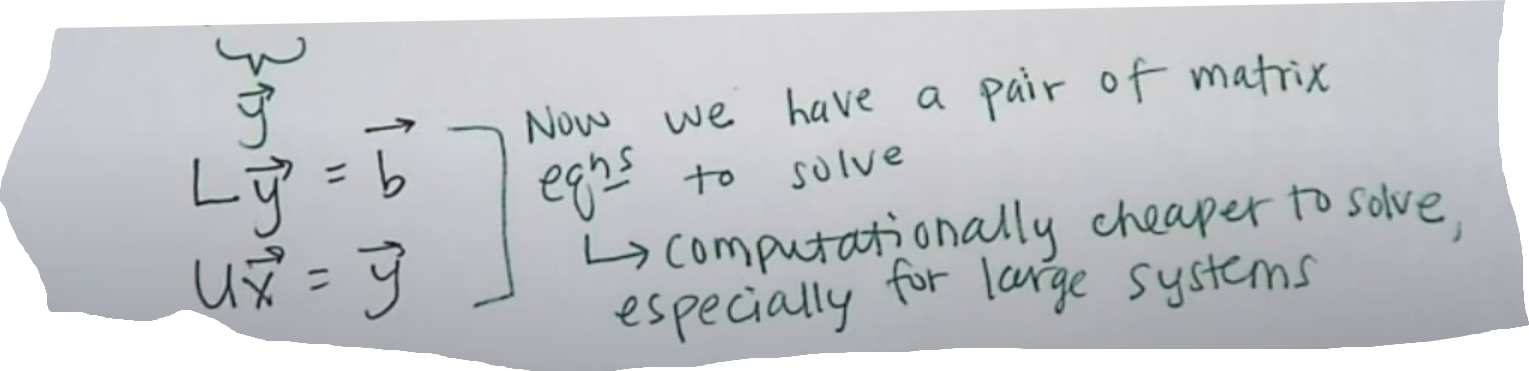 y⃗
Ly⃗ = b⃗
Ux⃗ = y⃗
Now we have a pair of matrix
eqns to solve
↳ computationally cheaper to solve,
especially for large systems